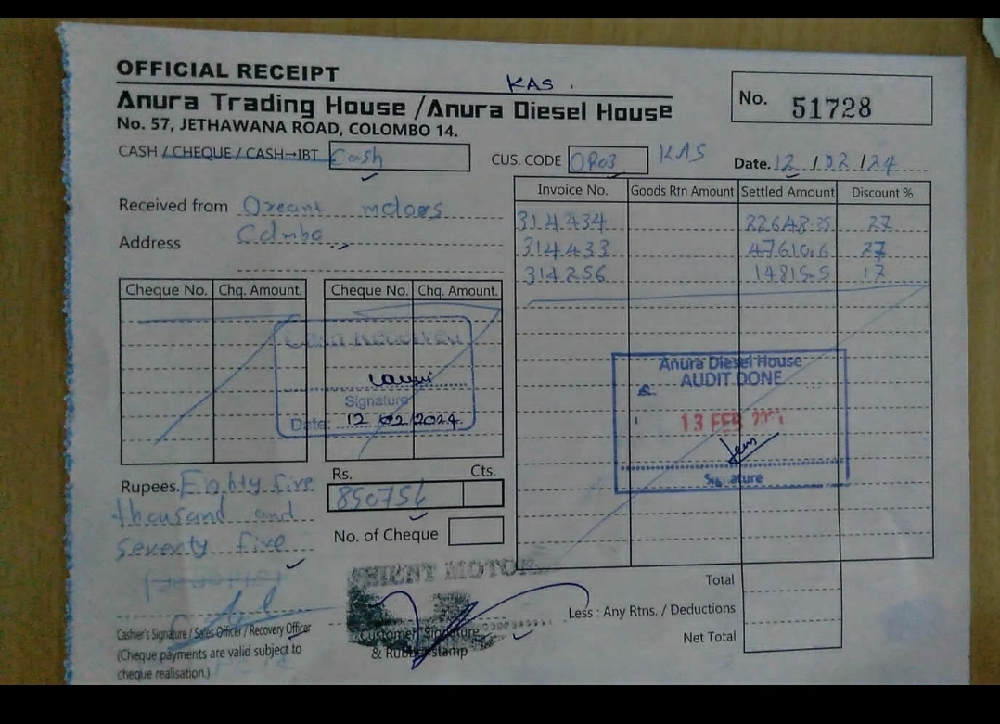 OFFICIAL RECEIPT
KAS
Anura Trading House / Anura Diesel House
No. 57, JETHAWANA ROAD, COLOMBO 14.
No. 51728
CASH / CHEQUE / CASH→IBT Cash
CUS. CODE OR03 KAS
Date. 12 / 02 / 24
Received from Oreant motors
Address
Cheque No. Chq. Amount Cheque No. Chq. Amount
Invoice No. Goods Rtn Amount Settled Amount Discount %
314434 22648.25 27
314433 47610.6 27
314256 14815.5 17
Signature
Date: 12 02/2024
Anura Diesel House
AUDIT DONE
13 FEB
Signature
Rupees. Eighty five
thousand and
seventy five
Rs. Cts.
85075
No. of Cheque
MOTOR
Cashier's Signature / Sales Officer / Recovery Officer
(Cheque payments are valid subject to
cheque realisation.)
Customer Signature
& Rubber stamp
Total
Less : Any Rtns. / Deductions
Net Total